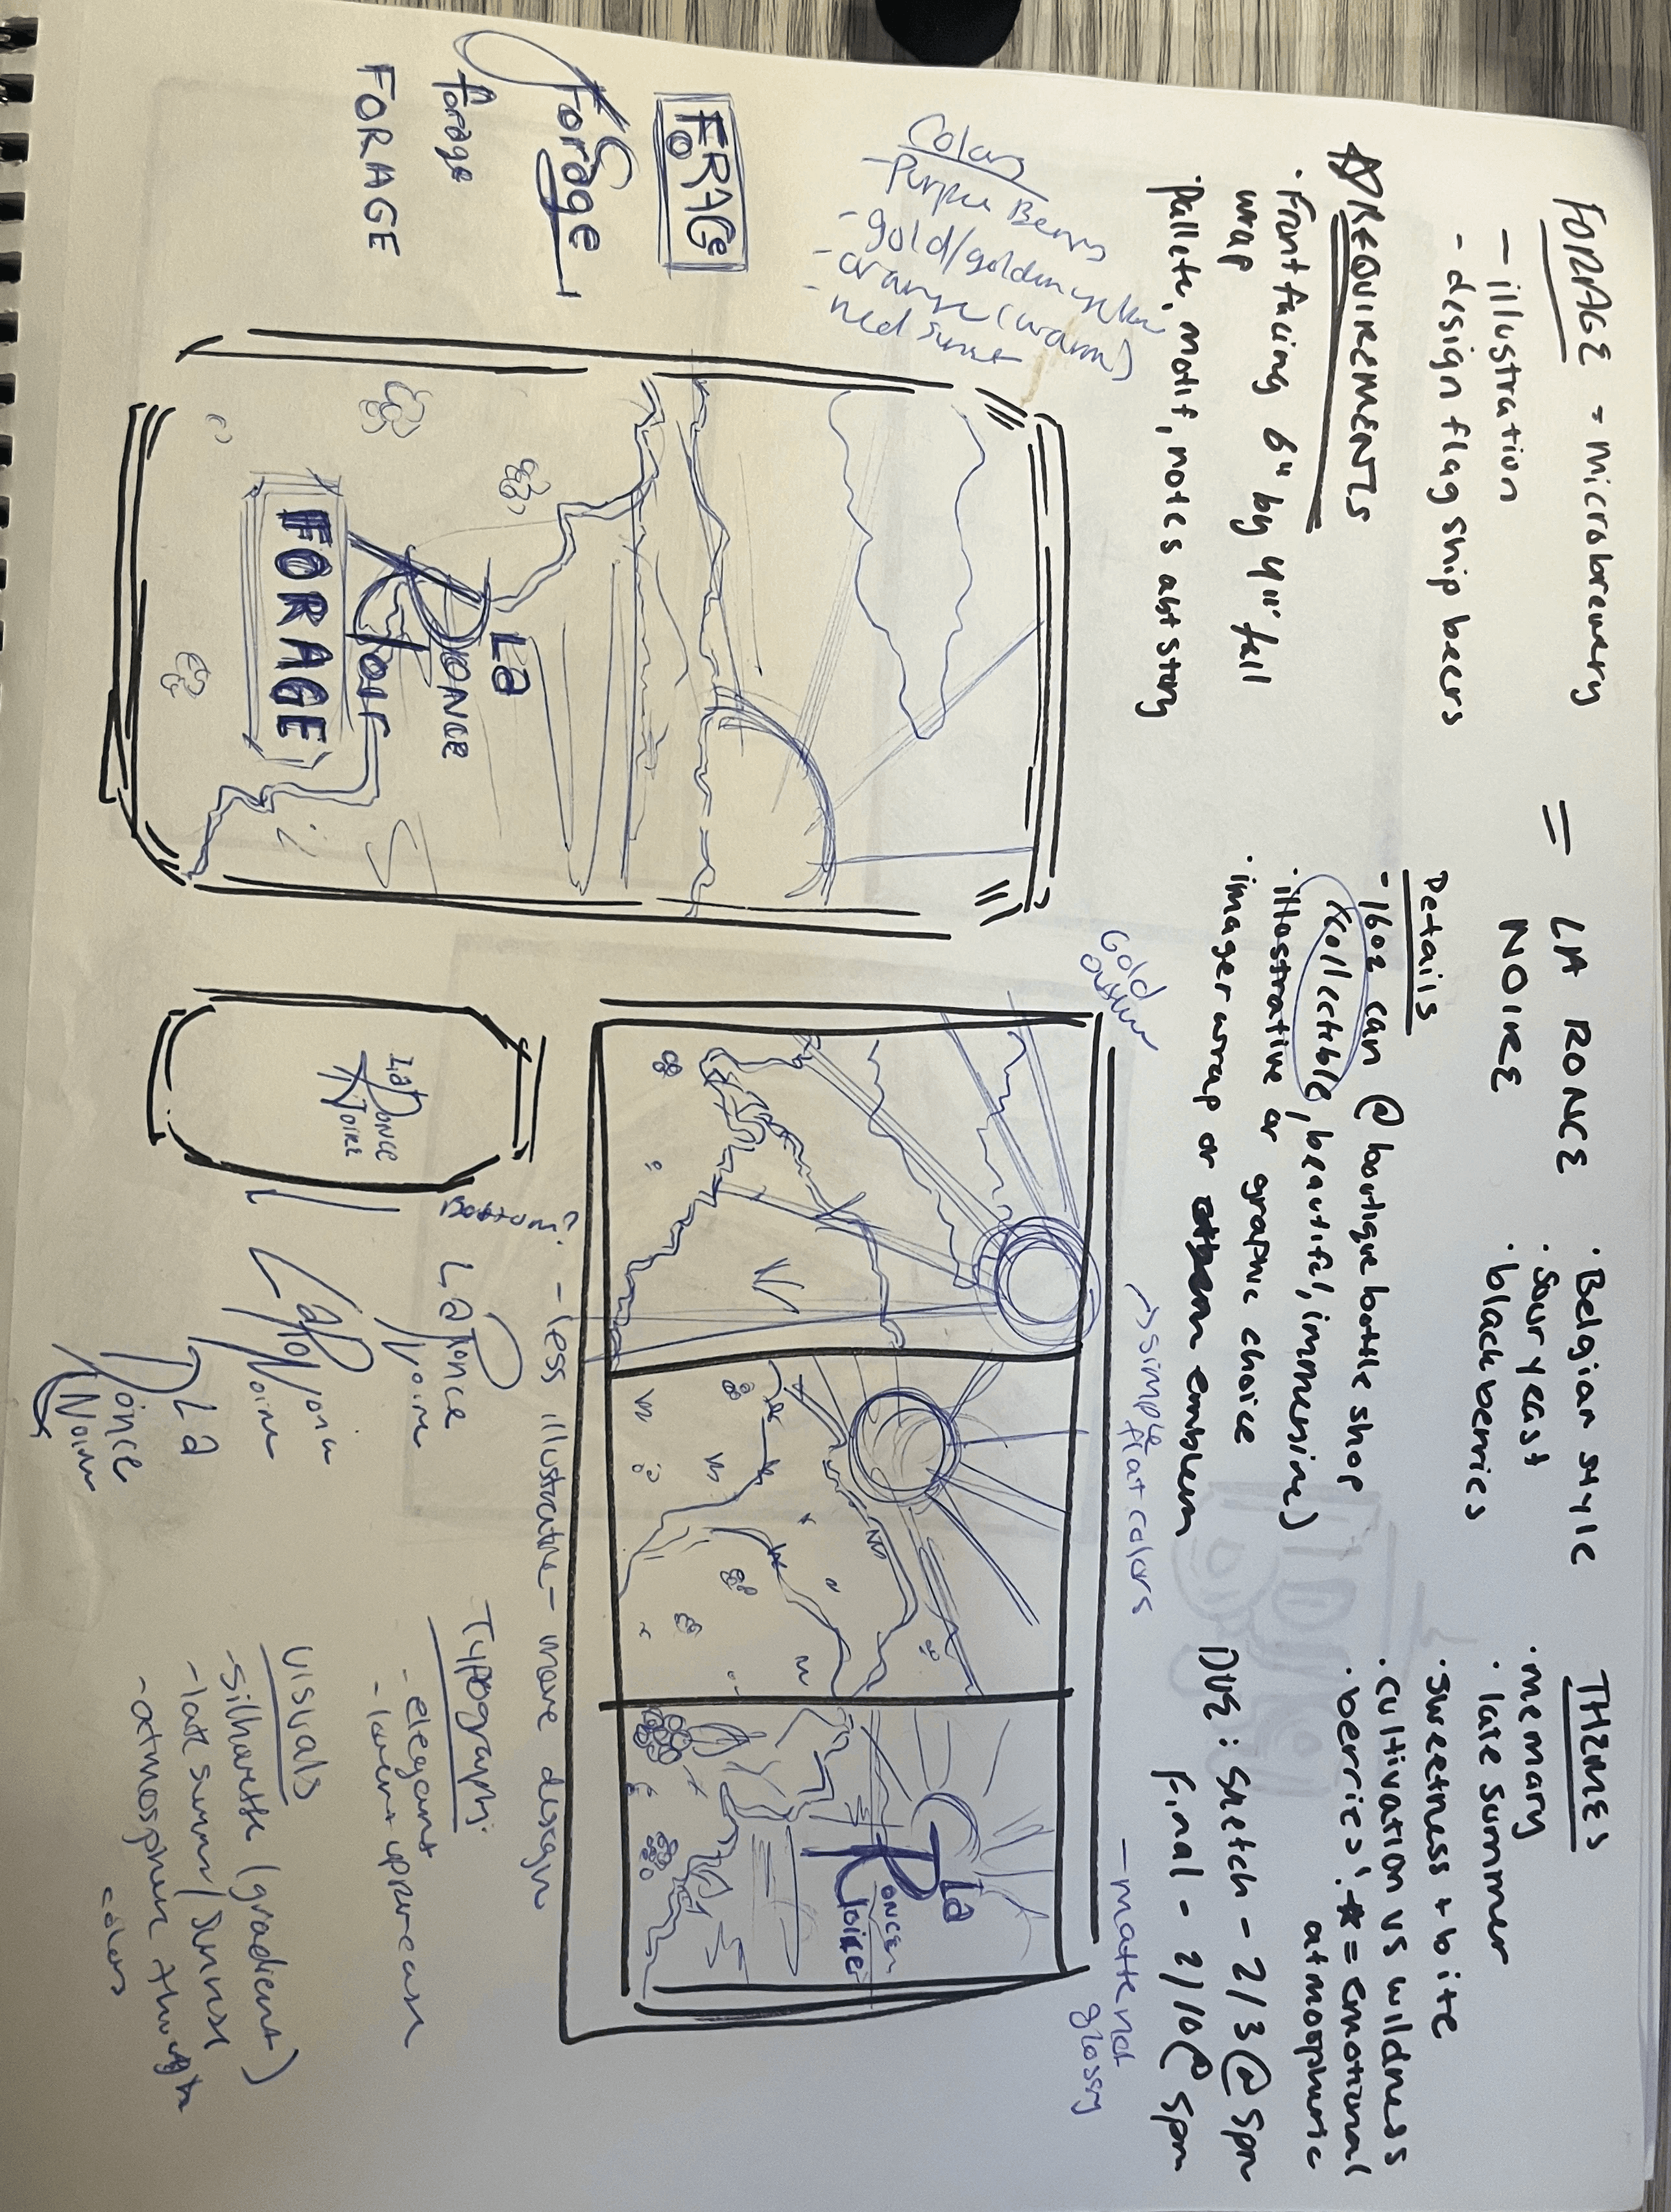 FORAGE = microbrewery
- illustration
- design flag ship beers
= LA RONCE
NOIRE
· Belgian style
· Sour yeast
· blackberries
THEMES
· memory
· late summer
· sweetness + bite
· cultivation vs wildness
· berries! * = emotional
atmospheric
REQUIREMENTS
· Front facing 6" by 4" full
wrap
· Pallete, motif, notes abt story
Details
- 16oz can @ boutique bottle shop
* collectible, beautiful, immersive)
· illustrative or graphic choice
· imager wrap or emblem
DUE: Sketch - 2/3 @ 5pm
Final - 2/10 @ 5pm
Colors
- Purple Berry
- gold/golden yellow
- orange (warm)
- red sunset
Gold
outline
→ simple
flat colors
- matte not
glossy
FORAGE
Forage
forage
FORAGE
La
RONCE
Noir
FORAGE
La
Ronce
Noire
La
Ronce
Noire
Bottom?
- less illustrative - more design
La Ronce
Noire
La
Ronce
Noire
Typography:
- elegant
- lower + uppercase
Visuals
- silhouette (gradient)
- late summer/sunset
- atmosphere through
colors